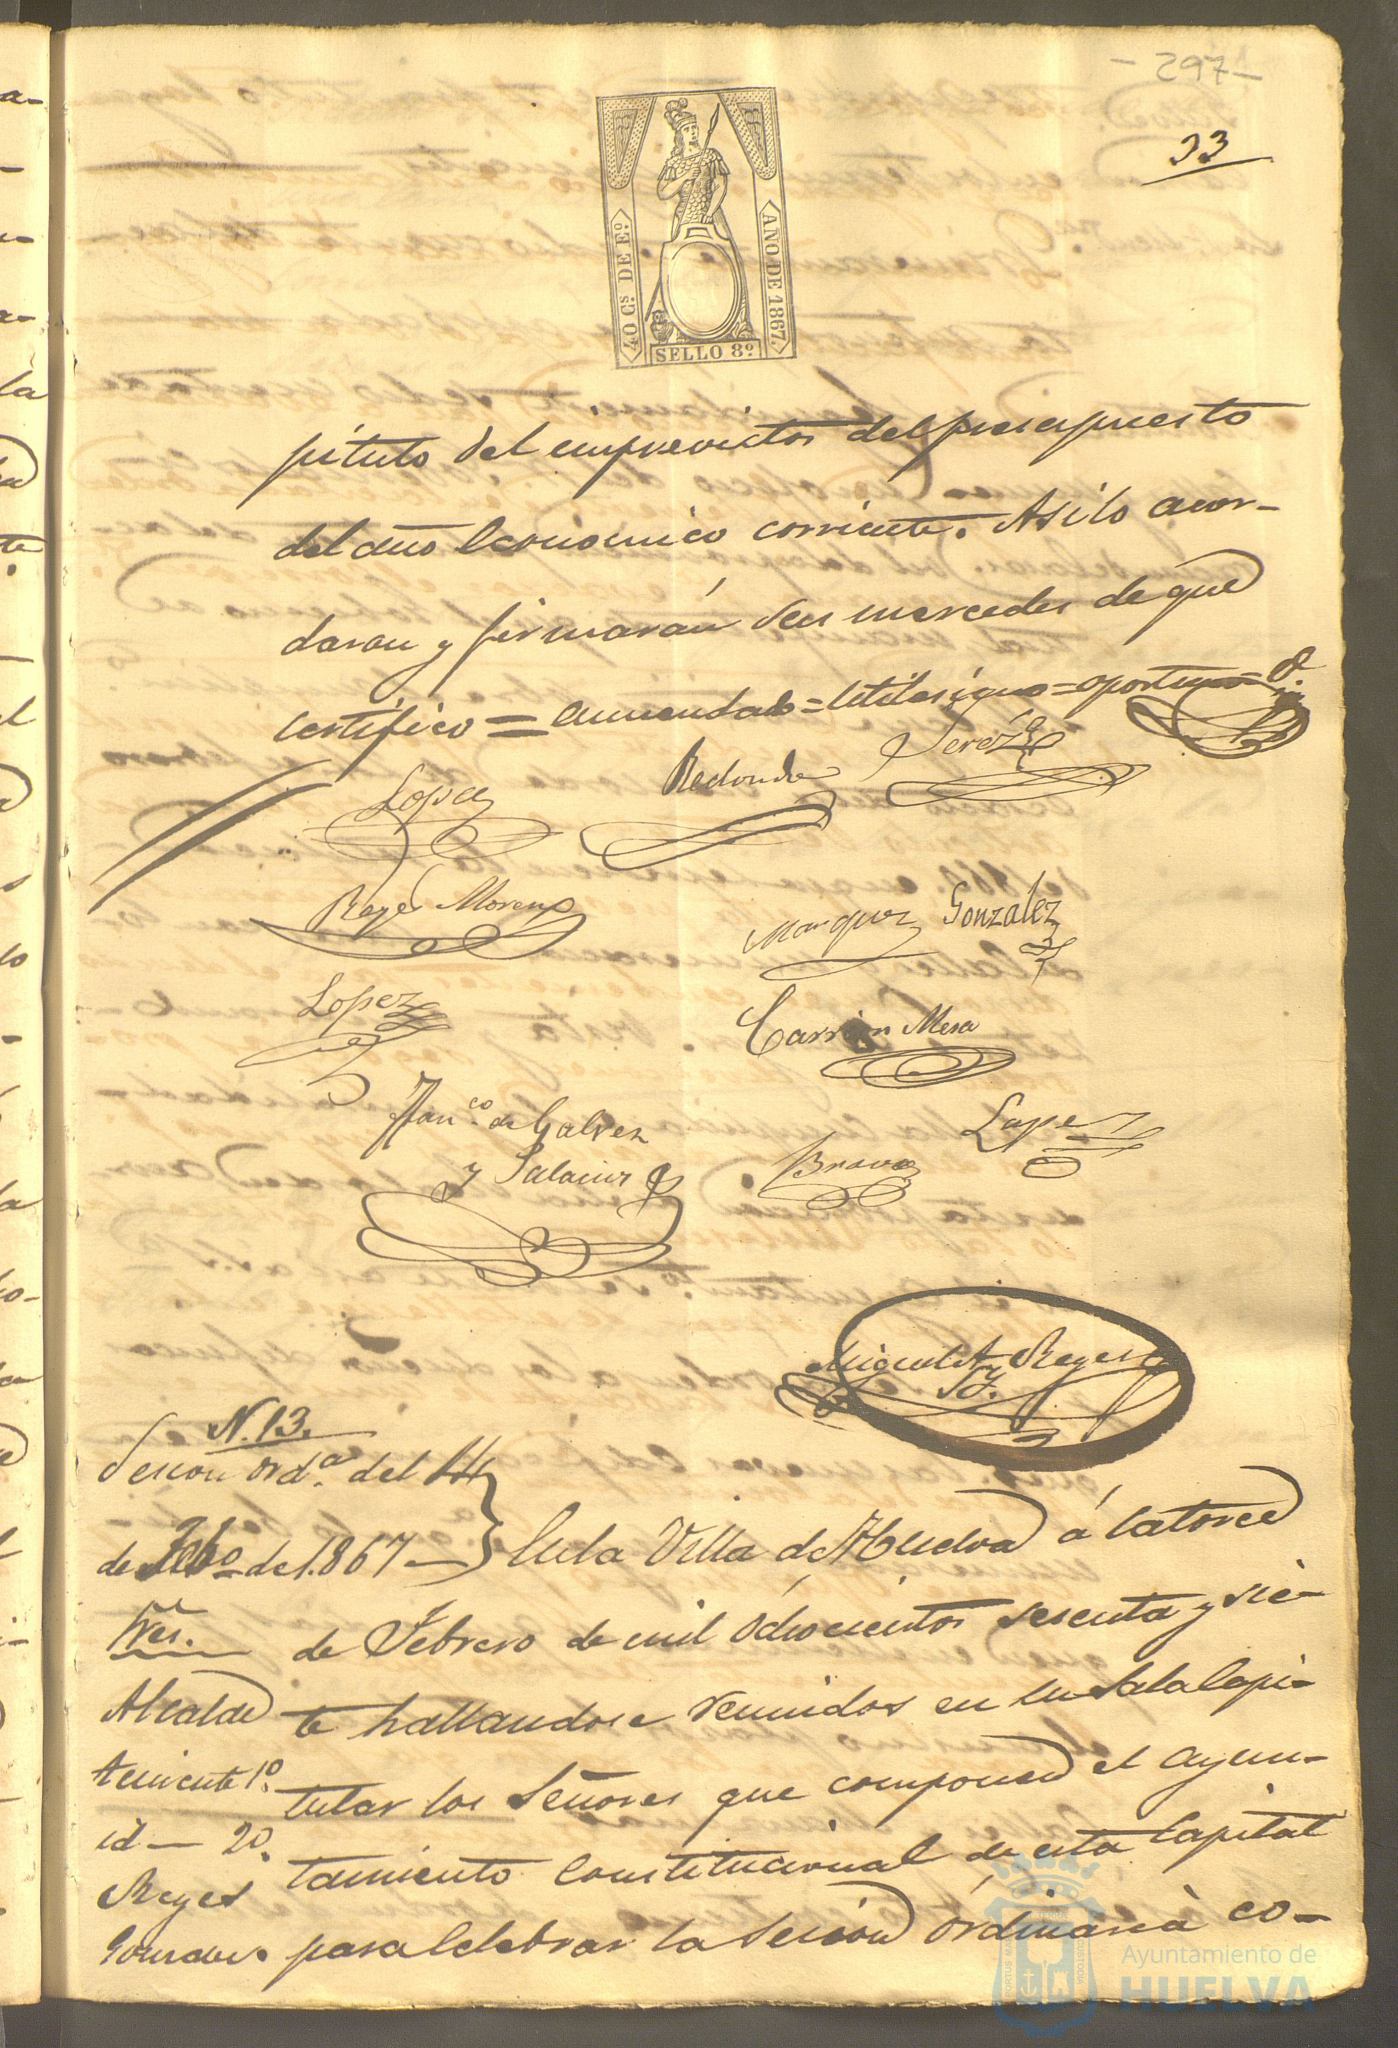 - 297 -
33
40 Cs. DE Eº.
AÑO DE 1867.
SELLO 8º
pitulo del imprevictos del presupuesto
del año Economico corriente. Asi lo acor-
daron y firmarán Sus mercedes de que
certifico = enmendado = = oportuno =
Lopez
Redondo
Jeréz
Reyes Moreno
Marquez
González
Lopez
Carrion Mesa
Franco. de Galvez
y Palacios
Bravo
Lopez
Miguel A. Reyes
N. 13.
Sesion ordª. del 14
de Febo. de 1.867 —
En la Villa de Huelva á Catorce
Sres.
de Febrero de mil Ochocientos sesenta y sie-
Alcalde
te hallandose reunidos en la Sala Capi-
teniente 1º.
tular los Señores que componen el ayun-
id — 2º.
tamiento Constitucional de esta Capital
Reyes
Gonzalez.
para Celebrar la Sesion Ordinaria co-
Ayuntamiento de
HUELVA